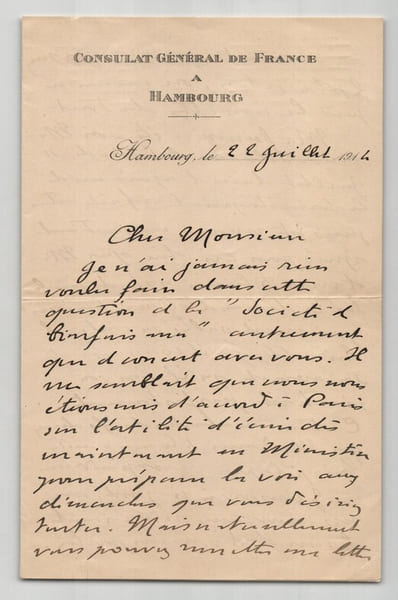 CONSULAT GÉNÉRAL DE FRANCE
A
HAMBOURG
Hambourg, le 22 Juillet 1914
Cher Monsieur
Je n'ai jamais rien
voulu faire dans cette
question de la "Société de
bienfaisance" autrement
que de concert avec vous. Il
me semblait que nous nous
étions mis d'accord à Paris
sur l'utilité d'écrire dès
maintenant au Ministère
pour préparer la voie aux
démarches que vous désiriez
tenter. Mais naturellement
vous pouvez remettre ma lettre